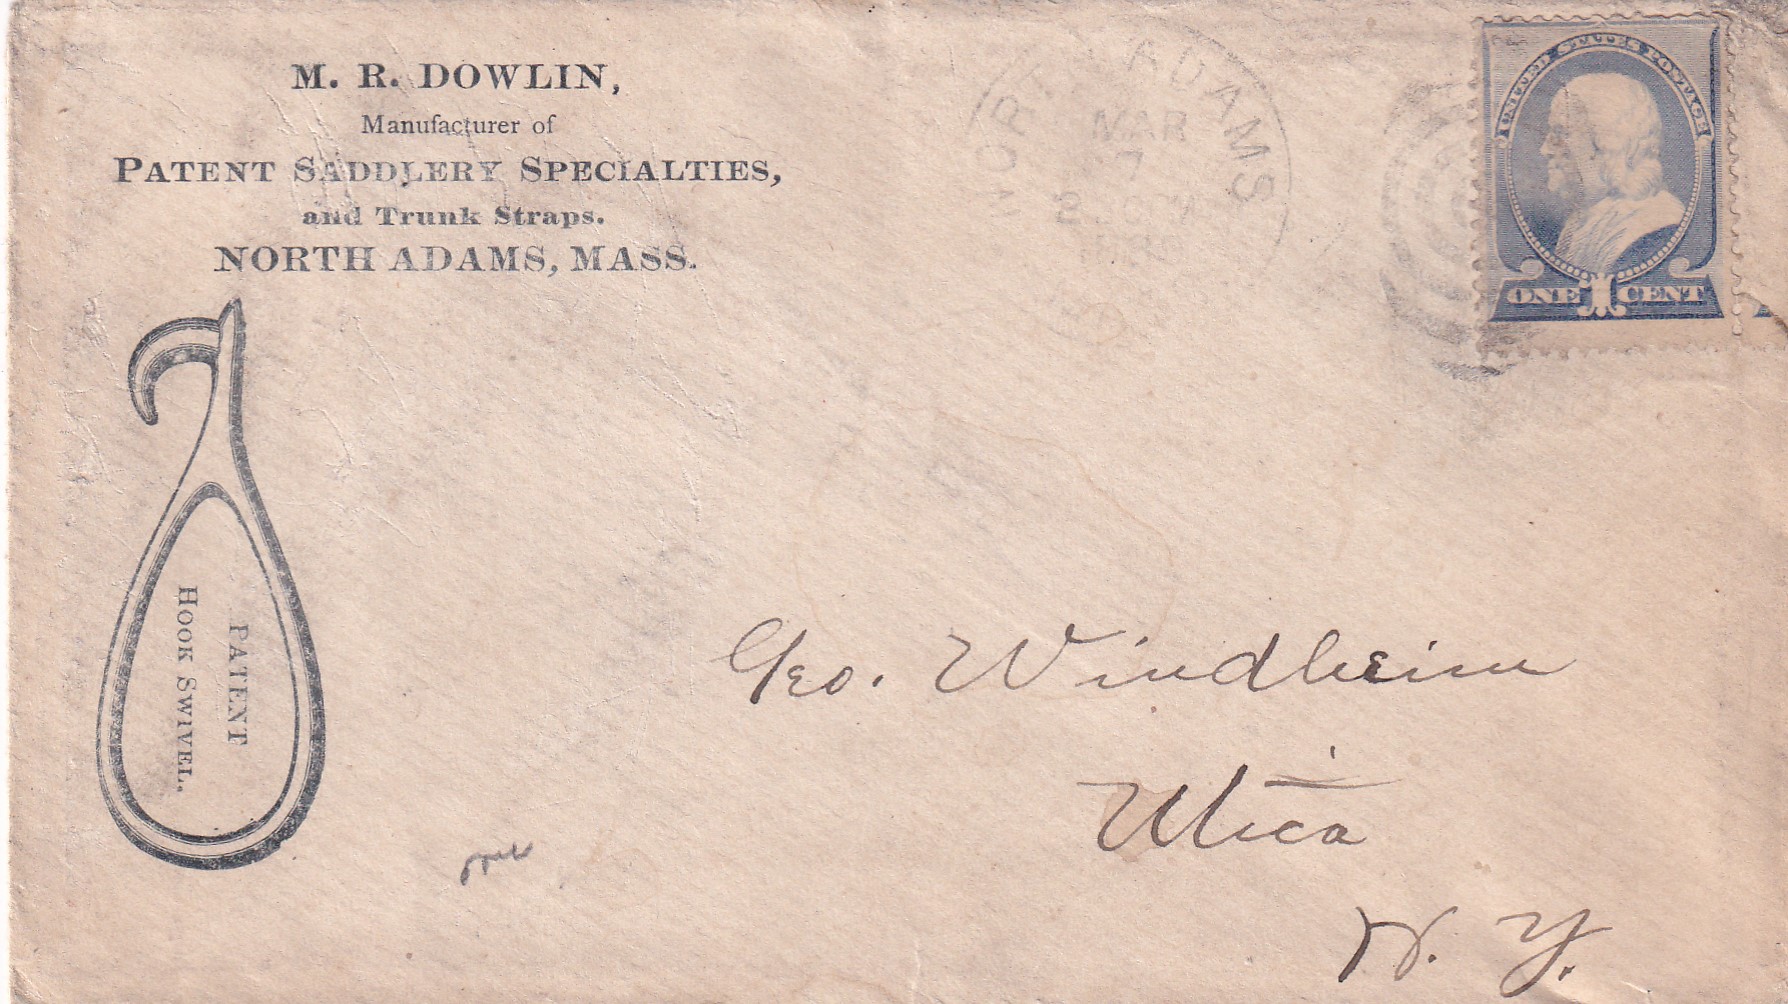 M. R. DOWLIN,
Manufacturer of
PATENT SADDLERY SPECIALTIES,
and Trunk Straps.
NORTH ADAMS, MASS.
PATENT
HOOK SWIVEL.
ADAMS
MAR
7
UNITED STATES POSTAGE
ONE 1 CENT
Geo. Windheim
Utica
N. Y.